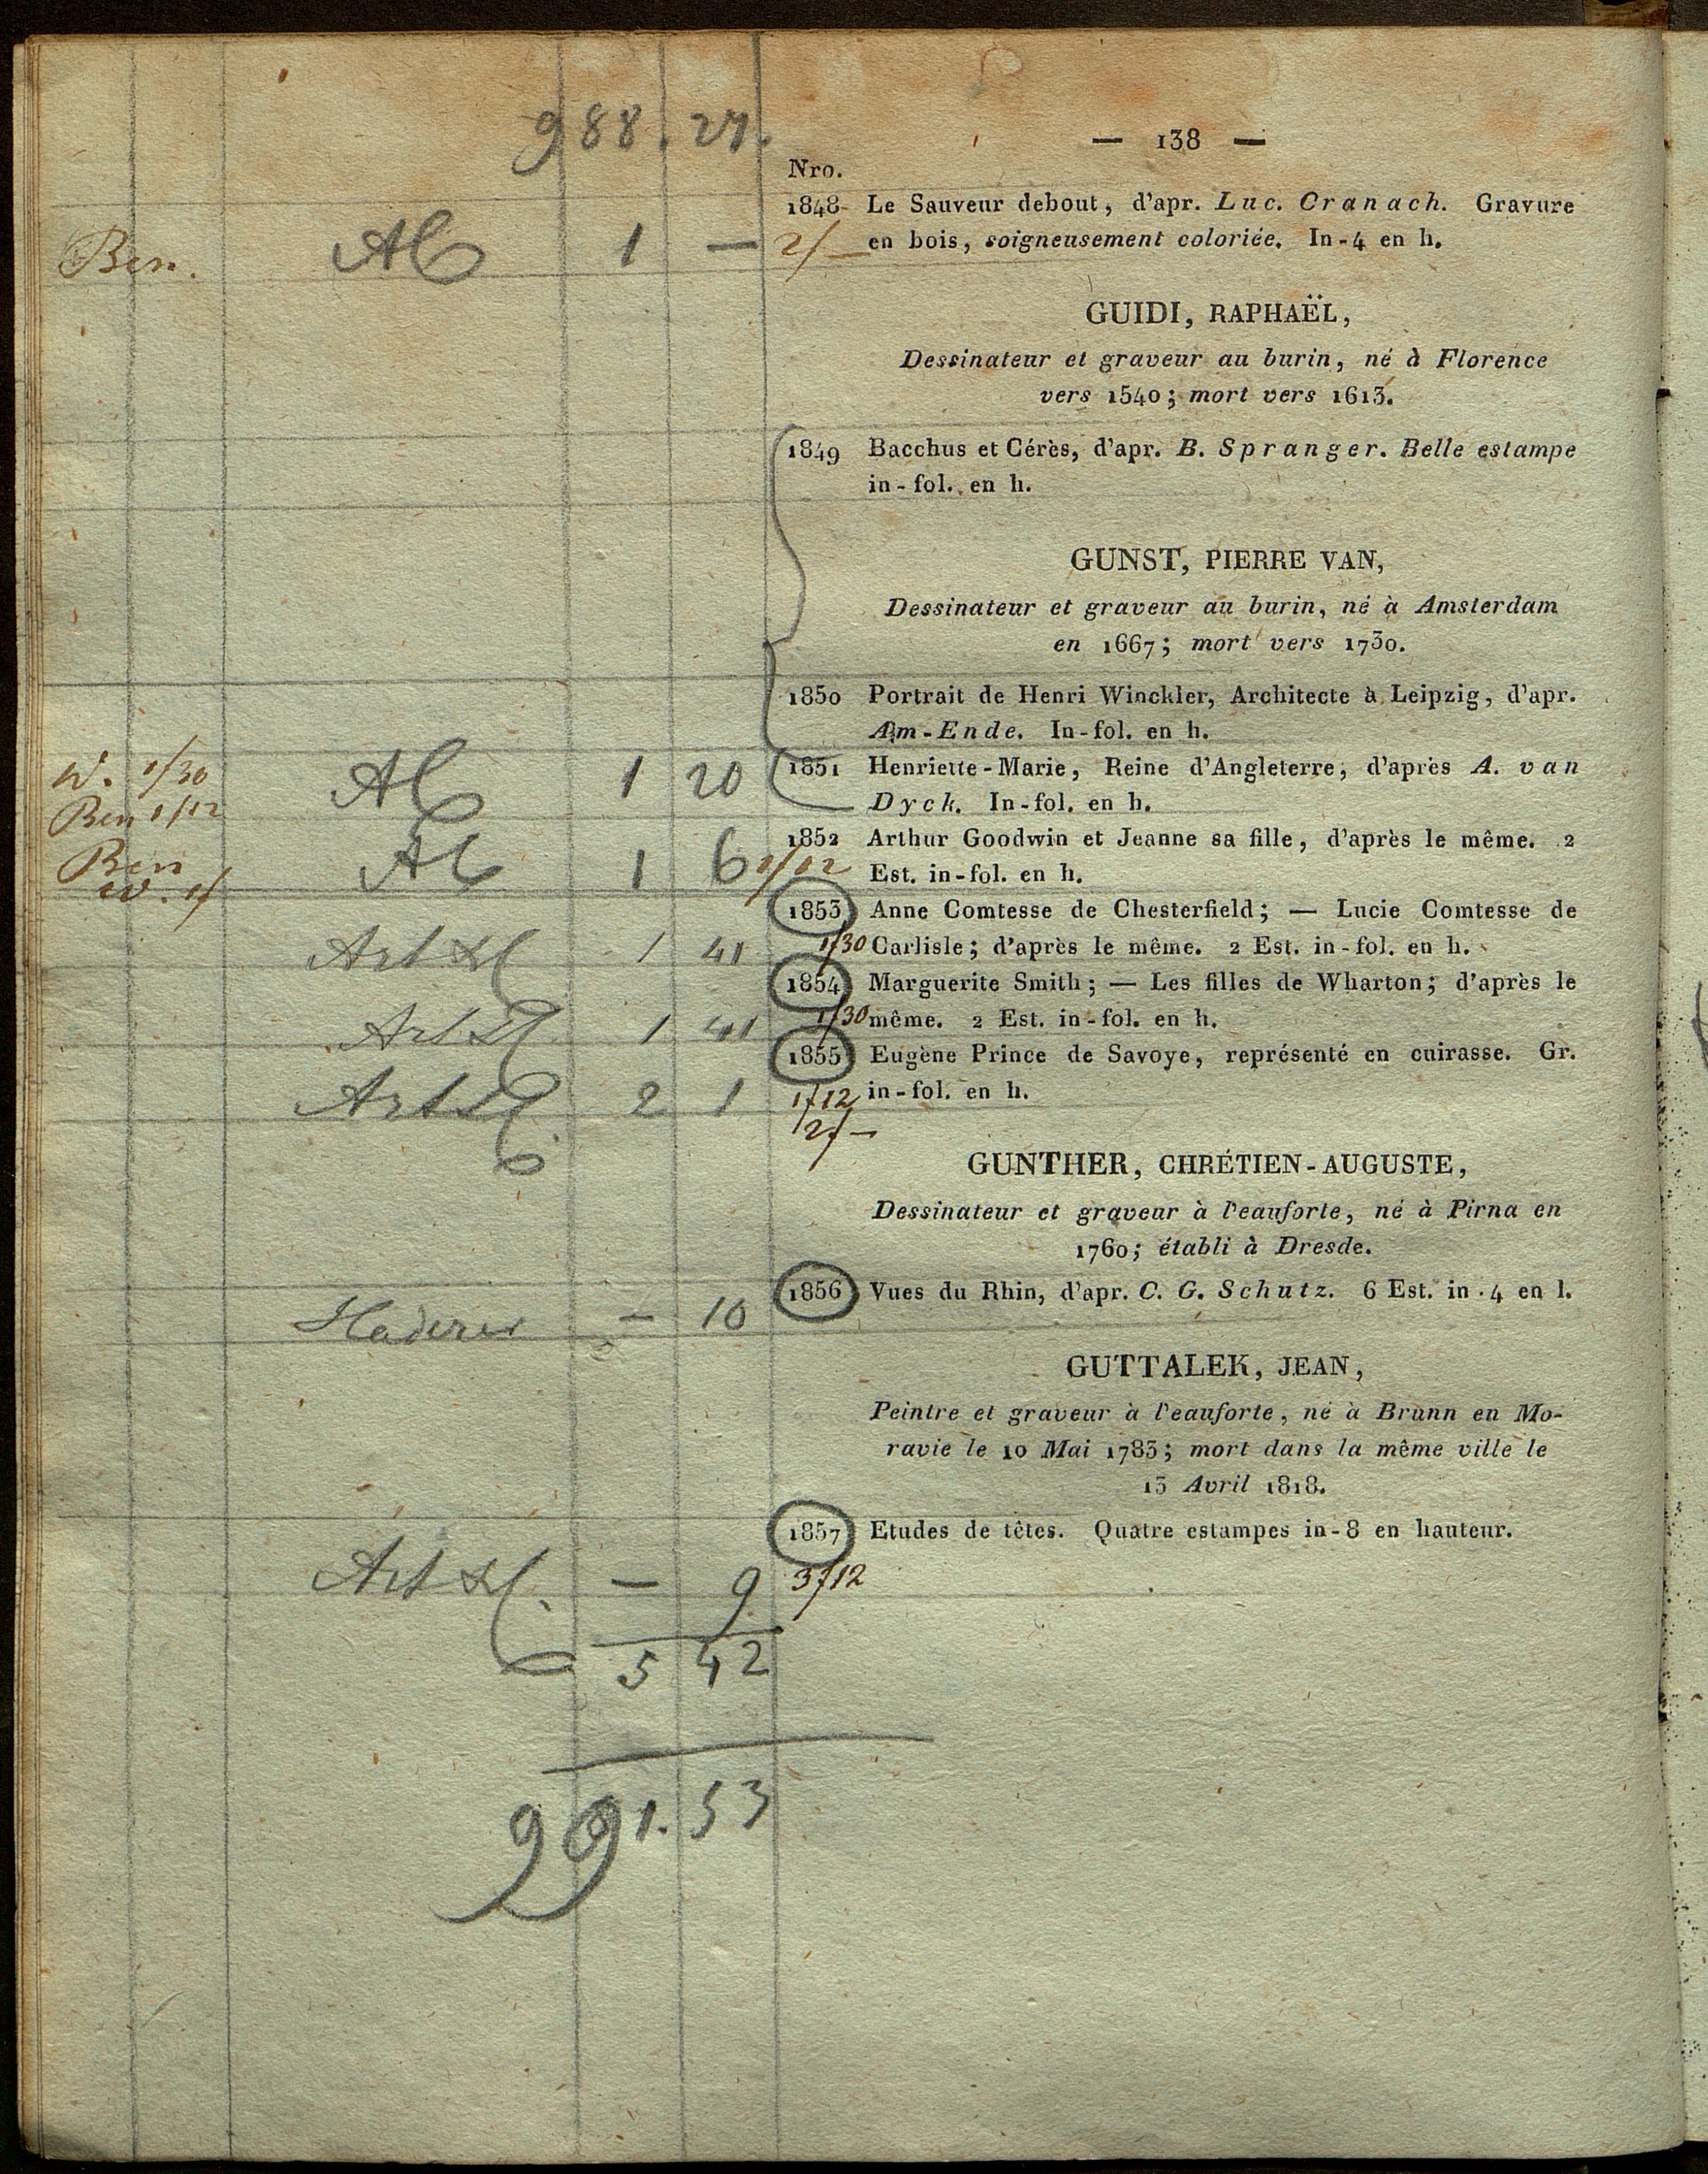 988. 27.
— 138 —
Nro.
1848 Le Sauveur debout, d'apr. Luc. Cranach. Gravure
Ben. 1 — 2/— en bois, soigneusement coloriée. In-4 en h.
GUIDI, RAPHAËL,
Dessinateur et graveur au burin, né à Florence
vers 1540; mort vers 1613.
1849 Bacchus et Cérès, d'apr. B. Spranger. Belle estampe
in-fol. en h.
GUNST, PIERRE VAN,
Dessinateur et graveur au burin, né à Amsterdam
en 1667; mort vers 1730.
1850 Portrait de Henri Winckler, Architecte à Leipzig, d'apr.
Am-Ende. In-fol. en h.
W. 1/30 1 20 1851 Henriette-Marie, Reine d'Angleterre, d'après A. van
Ben 1/12 Dyck. In-fol. en h.
1852 Arthur Goodwin et Jeanne sa fille, d'après le même. 2
Ben 1 6 1/12 Est. in-fol. en h.
W. 1/
1853 Anne Comtesse de Chesterfield; — Lucie Comtesse de
1 41 1/30 Carlisle; d'après le même. 2 Est. in-fol. en h.
1854 Marguerite Smith; — Les filles de Wharton; d'après le
1 41 1/30 même. 2 Est. in-fol. en h.
1855 Eugène Prince de Savoye, représenté en cuirasse. Gr.
2 1 1/12 in-fol. en h.
2/—
GUNTHER, CHRÉTIEN-AUGUSTE,
Dessinateur et graveur à l'eauforte, né à Pirna en
1760; établi à Dresde.
1856 Vues du Rhin, d'apr. C. G. Schutz. 6 Est. in.4 en l.
— 10
GUTTALEK, JEAN,
Peintre et graveur à l'eauforte, né à Brünn en Mo-
ravie le 10 Mai 1783; mort dans la même ville le
13 Avril 1818.
1857 Etudes de têtes. Quatre estampes in-8 en hauteur.
— 9 3/12
5 42
991. 53